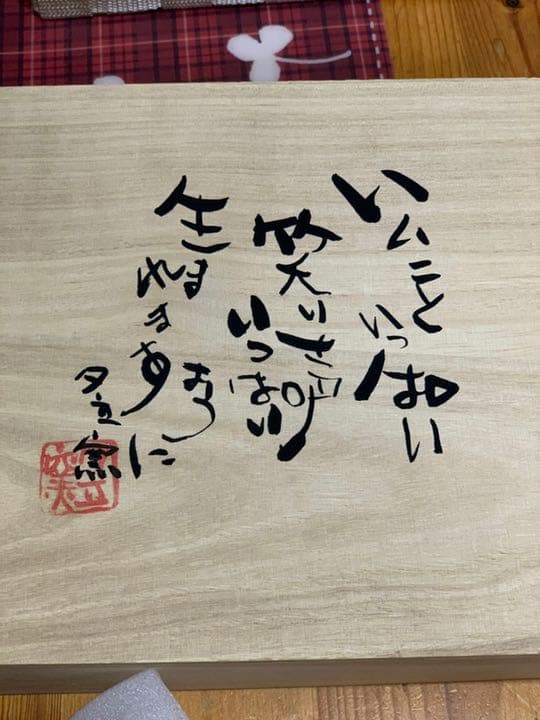 いいこと
いっぱい
笑い声
いっぱい
生まれます
ように
夕立窯